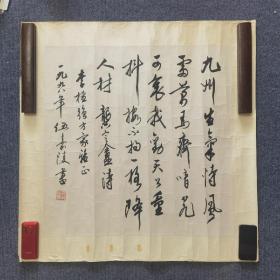 九州生气恃风
雷万马齐喑究
可哀我劝天公重
抖擞不拘一格降
人材 龚定盦诗
李植强方家诒正
一九九八年 伍嘉陵书